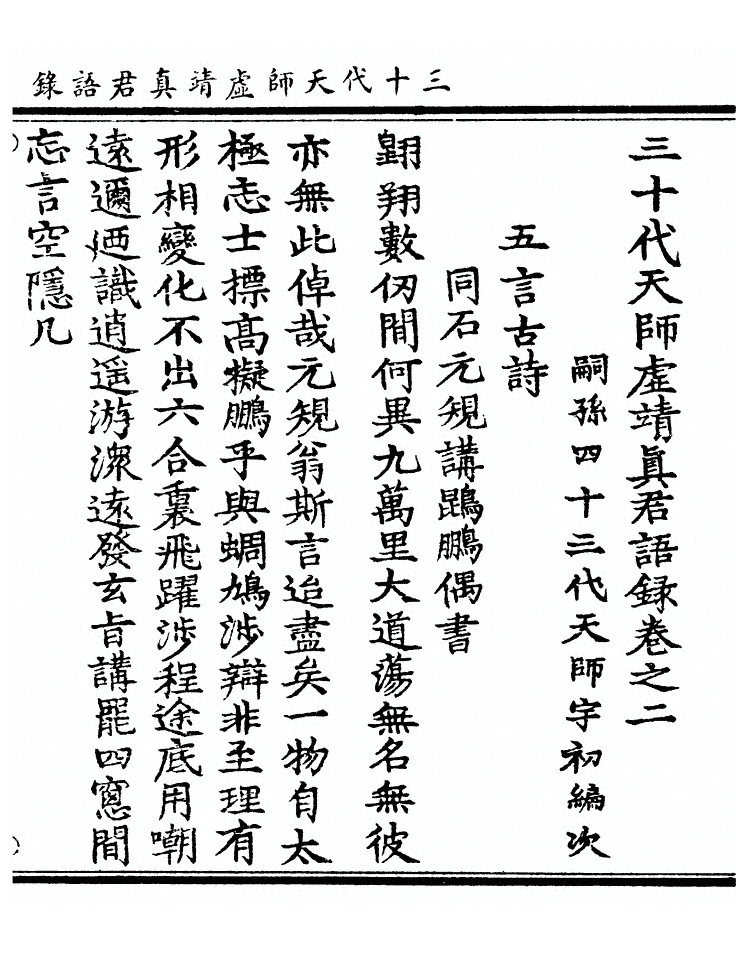 三十代天師虛靖真君語錄
三十代天師虛靖眞君語録卷之二
嗣孫四十三代天師宇初編次
五言古詩
同石元䂓講鵾鵬偶書
翺翔數仞間何異九萬里大道蕩無名無彼
亦無此倬哉元䂓翁斯言迨盡矣一物自太
極志士摽髙擬鵬乎與蜩鳩渉辯非至理有
形相變化不出六合裏飛躍渉程途底用嘲
遠邇迺識逍遥游深遠發玄㫖講罷四窻間
忘言空隱几